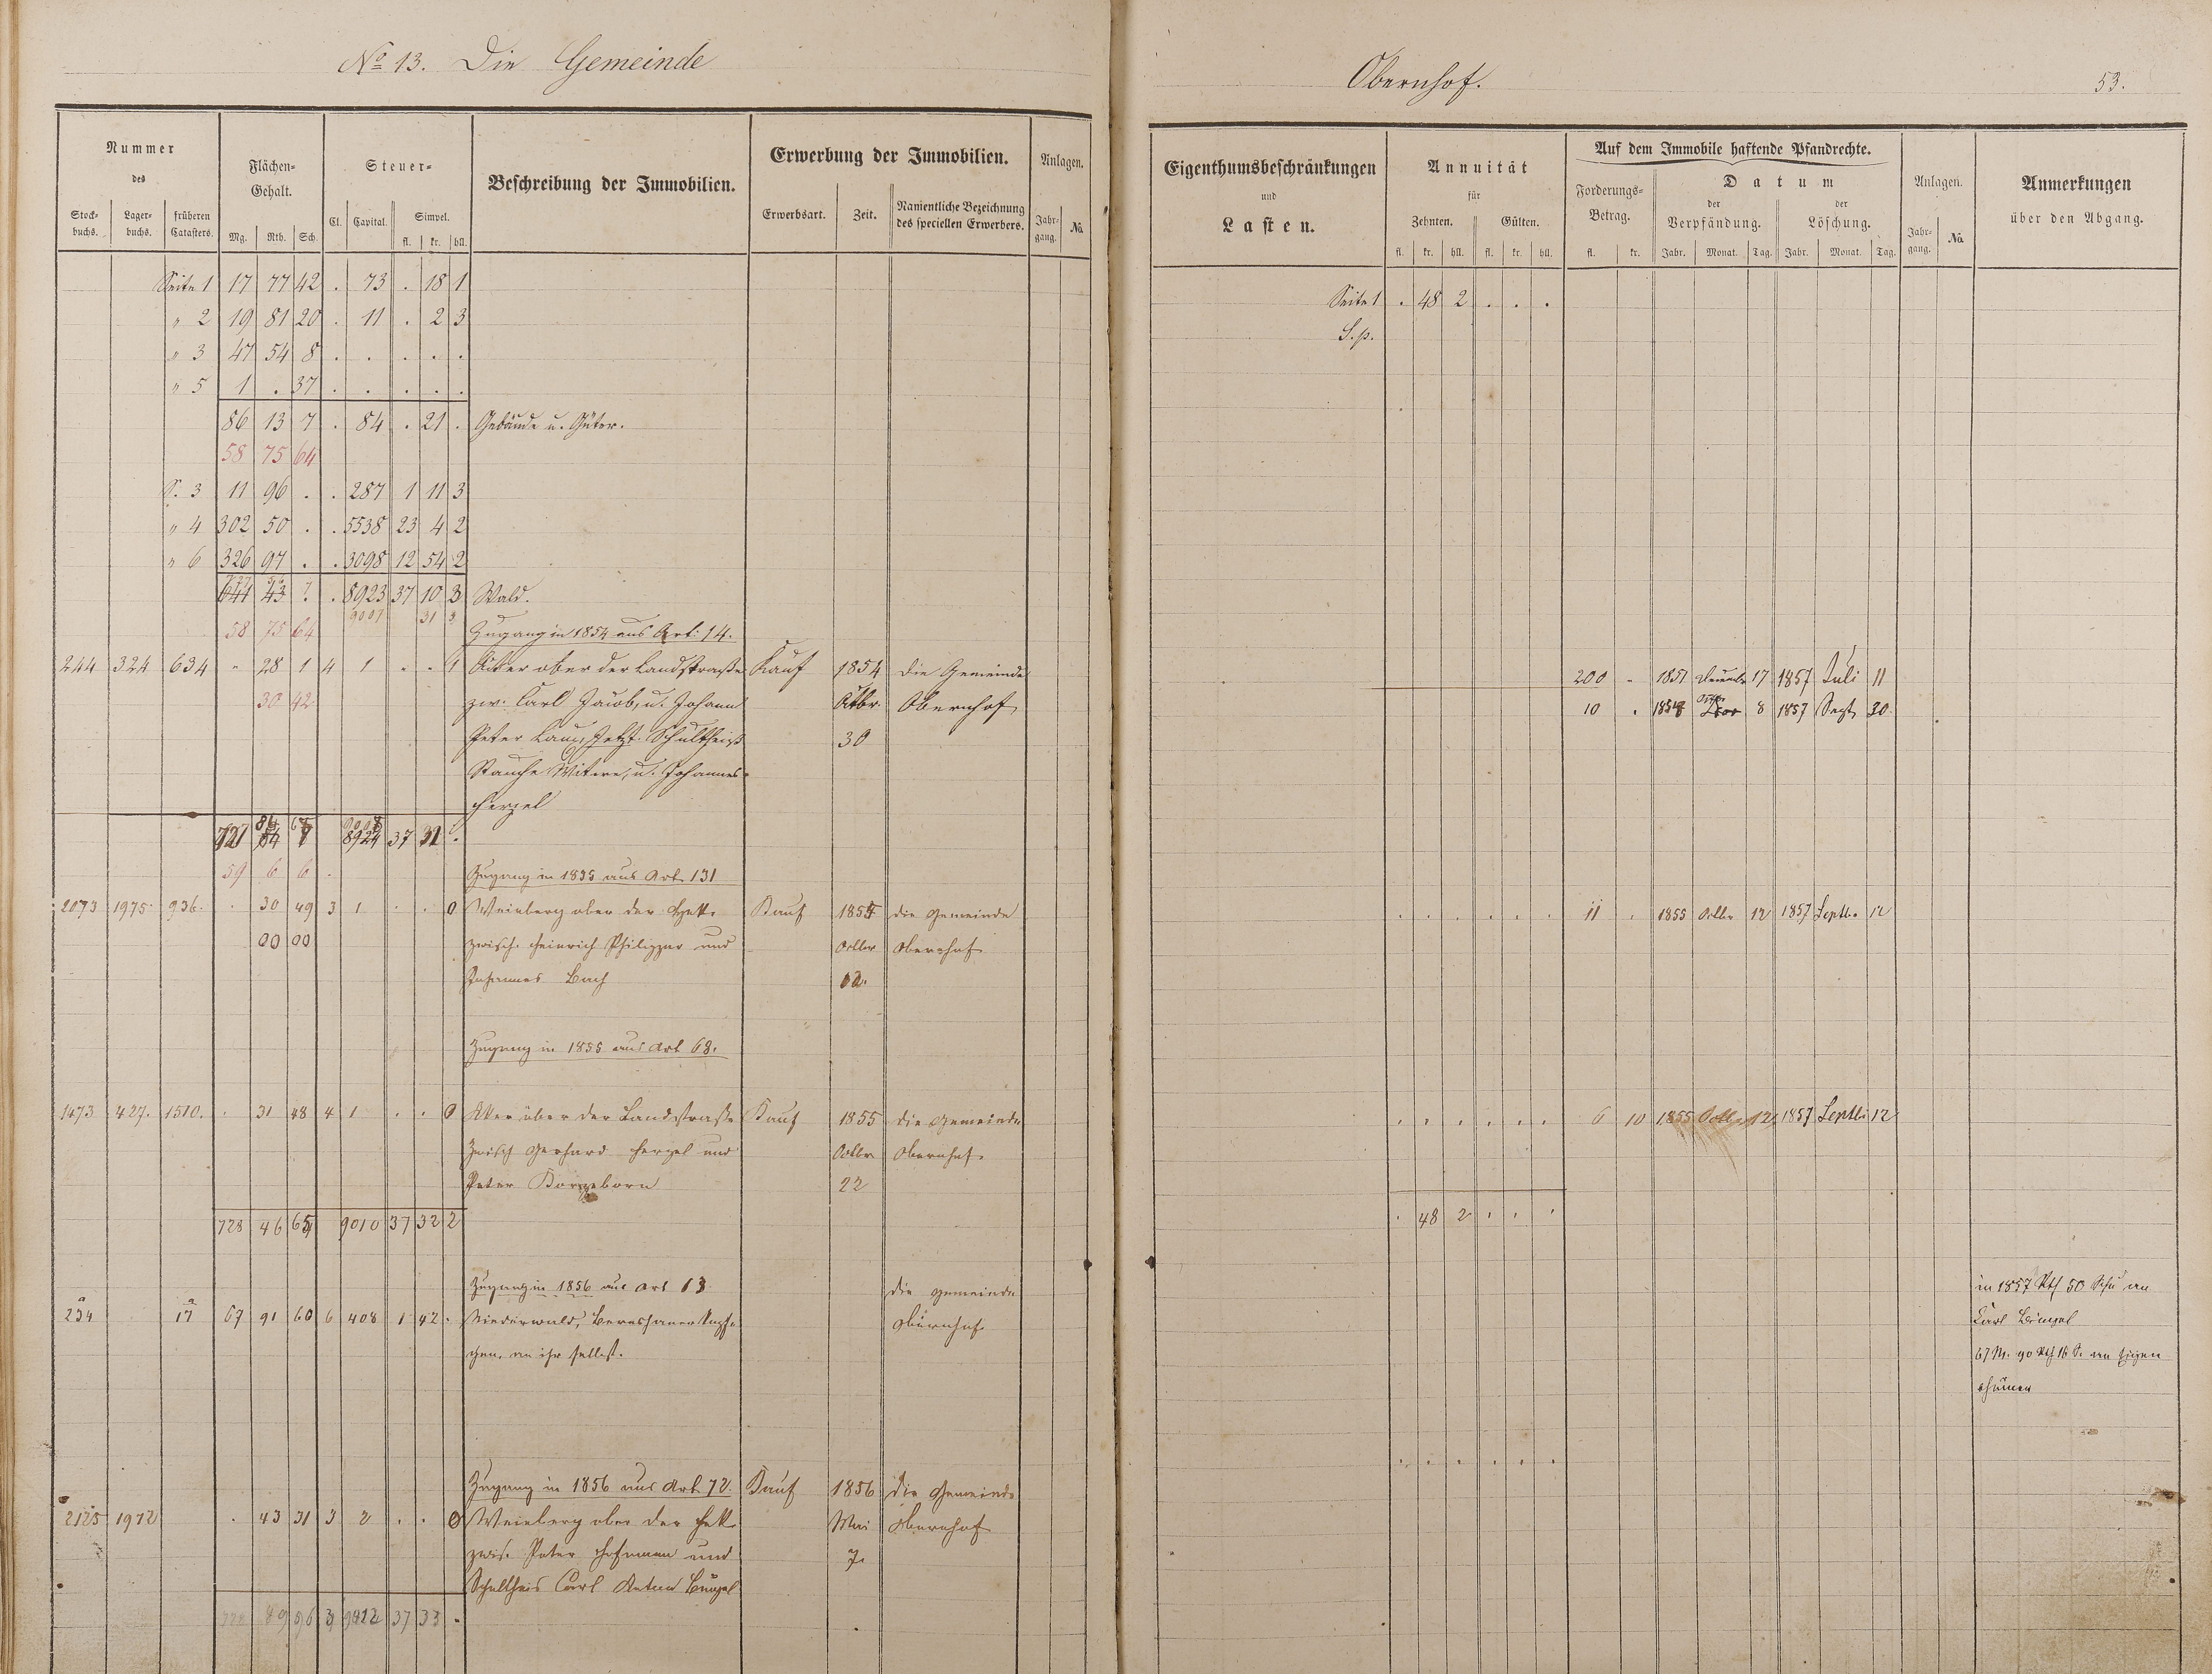 No 13. Die Gemeinde
Nummer
des
Stock-
buchs.
Lager-
buchs.
früheren
Catasters.
Flächen-
Gehalt.
Mg. Rth. Sch.
Steuer-
Cl. Capital. Simpel.
fl. kr. hll.
Beschreibung der Immobilien.
Erwerbung der Immobilien.
Erwerbsart. Zeit.
Namentliche Bezeichnung
des speciellen Erwerbers.
Anlagen.
Jahr-
gang. No.
Seite 1 17 77 42 . 73 . 18 1
" 2 19 81 20 . 11 . 2 3
" 3 47 54 8 . . . . .
" 5 1 . 37 . . . . .
86 13 7 . 84 . 21 . Gebäude u. Güter.
58 75 64
S. 3 11 96 . . 287 1 11 3
" 4 302 50 . . 5538 23 4 2
" 6 326 97 . . 3098 12 54 2
641 43 . . 8923 37 10 3 Wald.
9007 31 3
58 75 64 Zugang in 1854 aus Art: 14.
244 324 634 " 28 1 4 1 . . 1 Acker ober der Landstrasse Kauf 1854 die Gemeinde
30 42 zw. Carl Jacob, u. Johann Octbr. Obernhof
Peter Laux, jetzt Schultheiß 30
Wittwe, u. Johannes
Herzel
8924 37 31 .
59 6 6 Zugang in 1855 aus Art. 131
2073 1975. 936. . 30 49 3 1 . . 0 Weinberg ober der Hette Kauf 1855 die Gemeinde
00 00 zwisch. Heinrich Philippar und Octbr Obernhof
Johannes Bach 12.
Zugang in 1855 aus Art 68.
1473 427. 1510. . 31 48 4 1 . . 0 Acker über der Landstrasse Kauf 1855 die Gemeinde
Zwisch Gerhard Herzel und Octbr Obernhof
Peter 22
728 46 65 9010 37 32 2
Zugang in 1856 aus Art 13 die Gemeinde
234 a 17 a 67 91 60 6 408 1 42 . Niederwald, Obernhof
an ihr selbst.
Zugang in 1856 aus Art. 72. Kauf 1856 die Gemeinde
2125 1972 . 43 31 3 2 . . 0 Weinberg ober der Hett Mai Obernhof
zwis. Peter Hofmann und 7.
Schultheis Carl Anton Bingel
37 33 .
Obernhof.
53.
Eigenthumsbeschränkungen
und
Lasten.
Annuität
für
Zehnten. Gülten.
fl. kr. hll. fl. kr. hll.
Auf dem Immobile haftende Pfandrechte.
Forderungs-
Betrag.
fl. kr.
Datum
der
Verpfändung.
Jahr. Monat. Tag.
der
Löschung.
Jahr. Monat. Tag.
Anlagen.
Jahr-
gang. No.
Anmerkungen
über den Abgang.
Seite 1 . 48 2 . . .
S. p.
200 " 1851 Decembr 17 1857 Juli 11
10 . 1854 8 1857 Sept 30
. . . . . . 11 . 1855 Octbr 12 1857 Septbr 12
. . . . . . 6 10 1855 Octbr 12 1857 Septbr 12
. 48 2 . . .
in 1857 Rth 50 Schu an
Karl Bingel
67 M. 90 Rth 16 S. an Eigen
thümer
. . . . . .